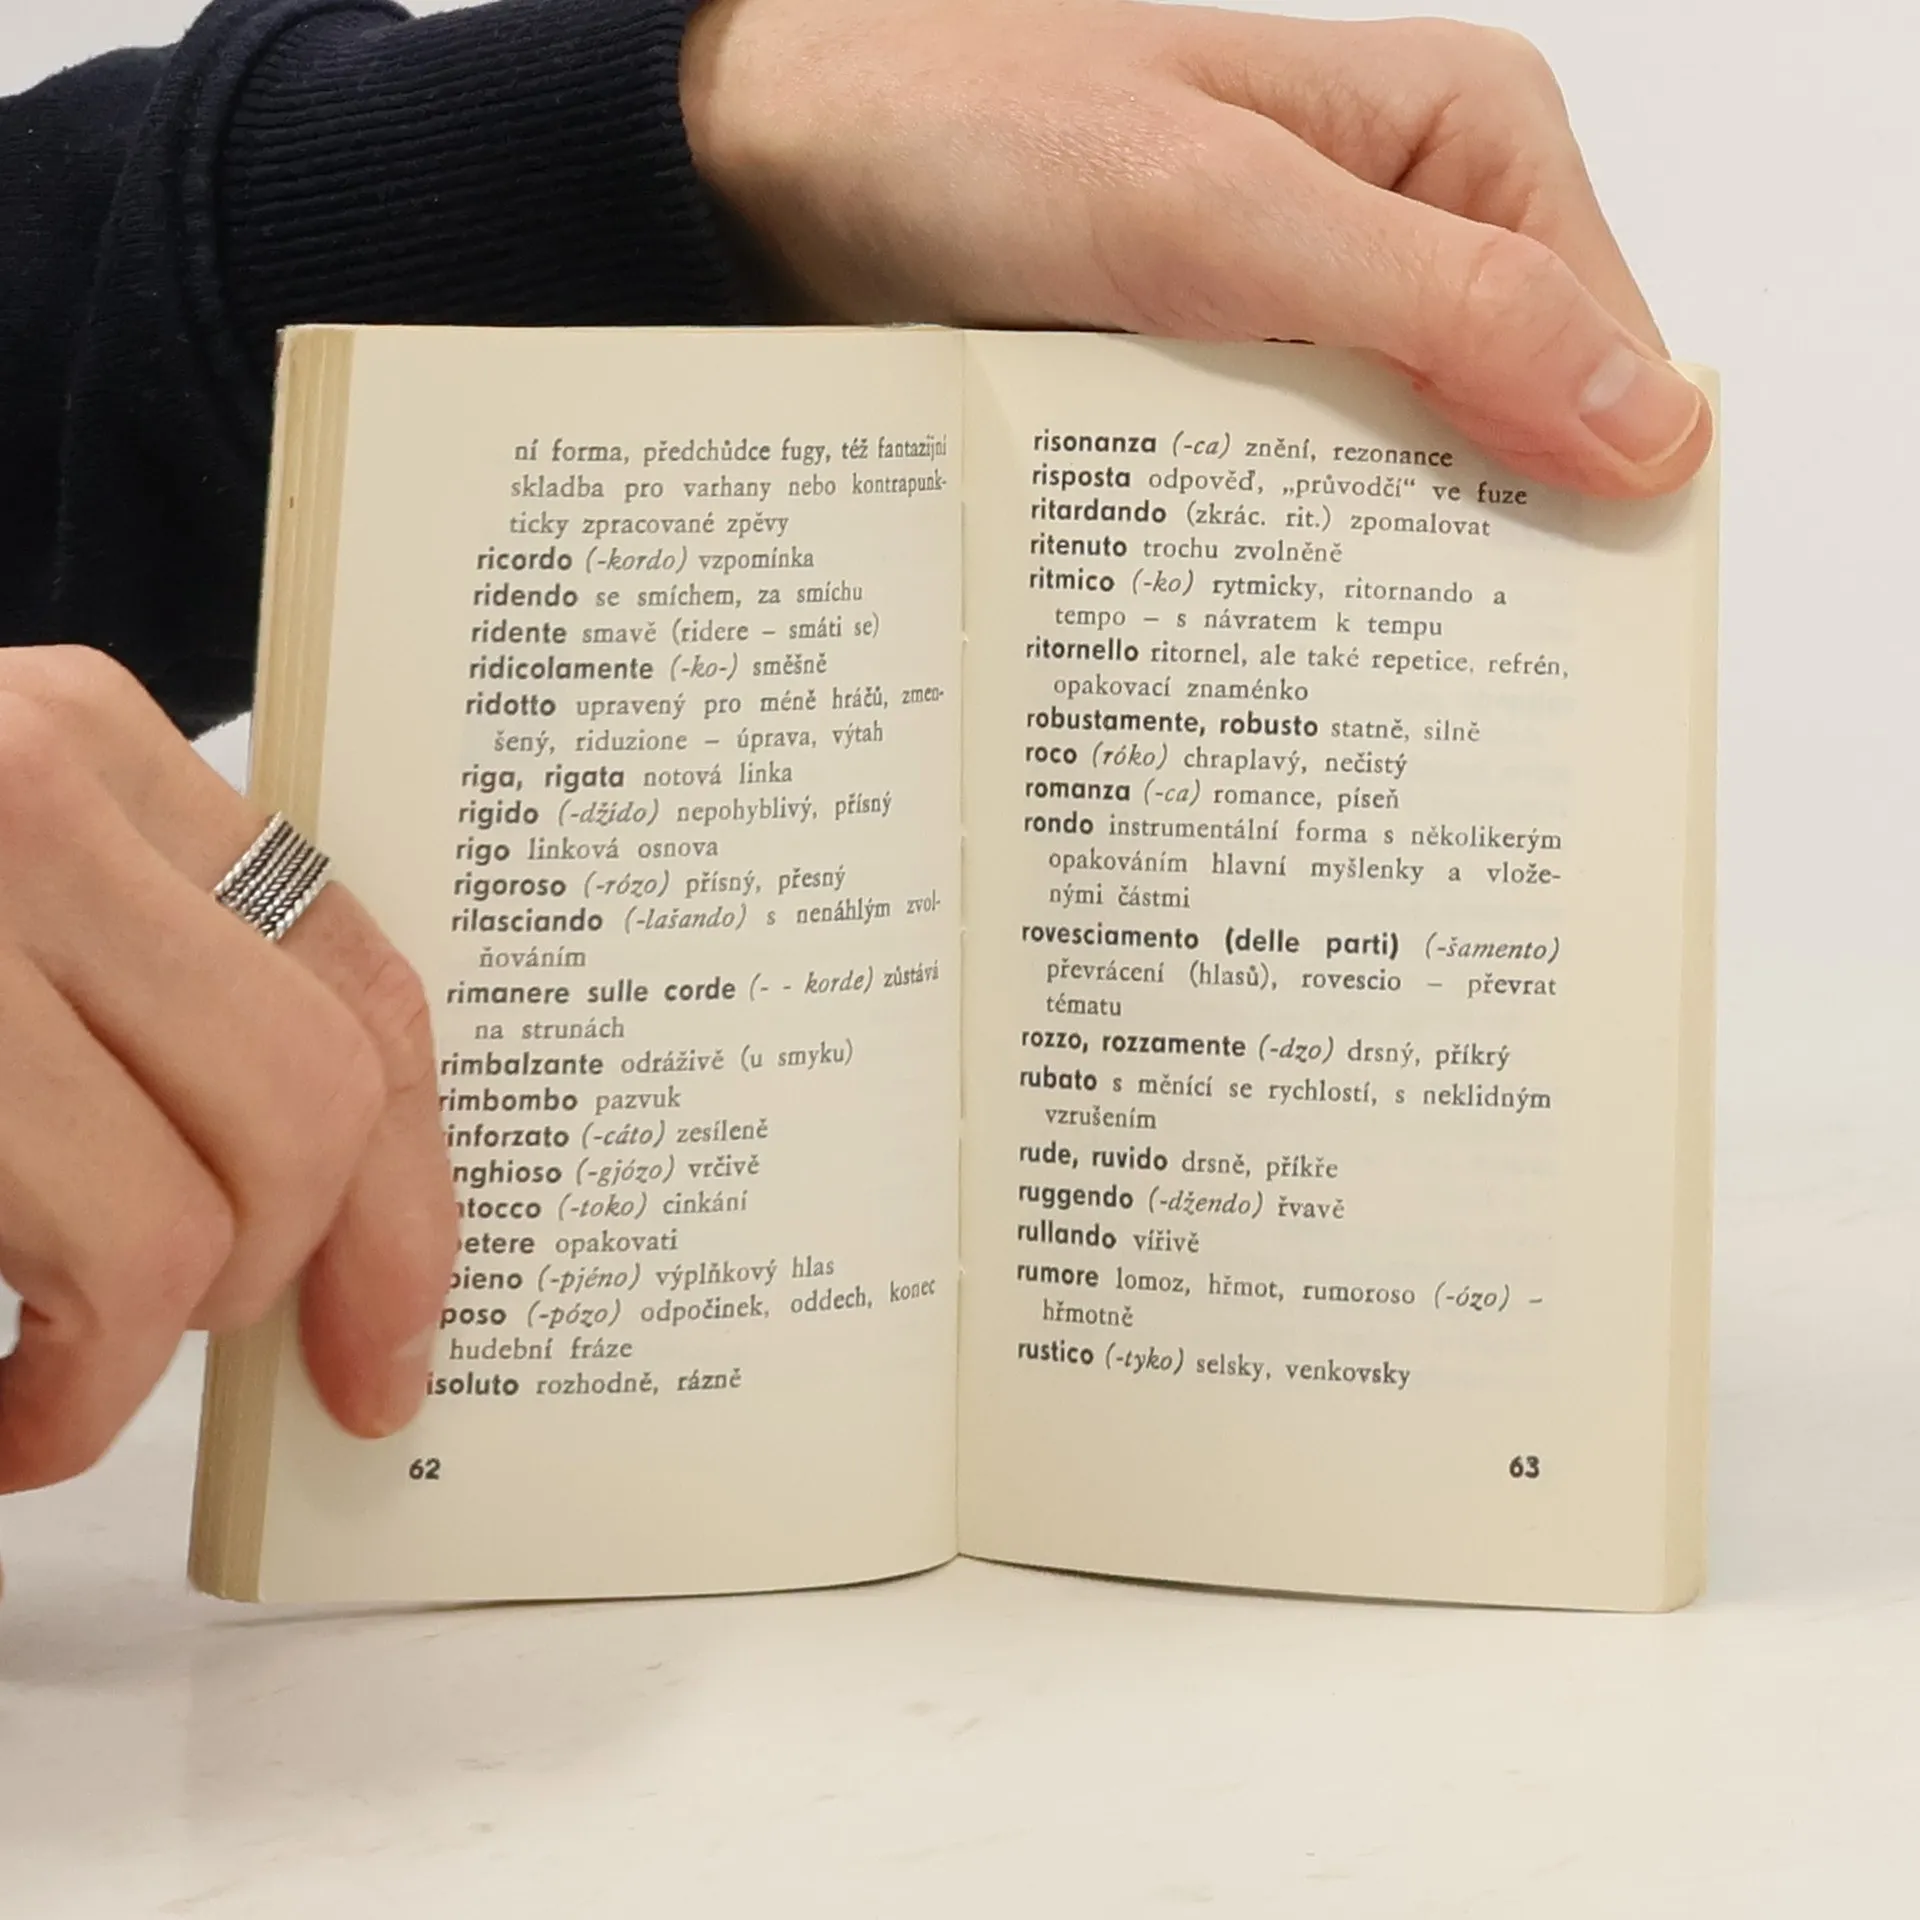 ní forma, předchůdce fugy, též fantazijní
skladba pro varhany nebo kontrapunk-
ticky zpracované zpěvy
ricordo (-kordo) vzpomínka
ridendo se smíchem, za smíchu
ridente smavě (ridere – smáti se)
ridicolamente (-ko-) směšně
ridotto upravený pro méně hráčů, zmen-
šený, riduzione – úprava, výtah
riga, rigata notová linka
rigido (-džído) nepohyblivý, přísný
rigo linková osnova
rigoroso (-rózo) přísný, přesný
rilasciando (-lašando) s nenáhlým zvol-
ňováním
rimanere sulle corde (- - korde) zůstává
na strunách
rimbalzante odráživě (u smyku)
rimbombo pazvuk
inforzato (-cáto) zesíleně
nghioso (-gjózo) vrčivě
ntocco (-toko) cinkání
petere opakovati
pieno (-pjéno) výplňkový hlas
poso (-pózo) odpočinek, oddech, konec
hudební fráze
isoluto rozhodně, rázně
62
risonanza (-ca) znění, rezonance
risposta odpověď, „průvodčí“ ve fuze
ritardando (zkrác. rit.) zpomalovat
ritenuto trochu zvolněně
ritmico (-ko) rytmicky, ritornando a
tempo – s návratem k tempu
ritornello ritornel, ale také repetice, refrén,
opakovací znaménko
robustamente, robusto statně, silně
roco (róko) chraplavý, nečistý
romanza (-ca) romance, píseň
rondo instrumentální forma s několikerým
opakováním hlavní myšlenky a vlože-
nými částmi
rovesciamento (delle parti) (-šamento)
převrácení (hlasů), rovescio – převrat
tématu
rozzo, rozzamente (-dzo) drsný, příkrý
rubato s měnící se rychlostí, s neklidným
vzrušením
rude, ruvido drsně, příkře
ruggendo (-džendo) řvavě
rullando vířivě
rumore lomoz, hřmot, rumoroso (-ózo) –
hřmotně
rustico (-tyko) selsky, venkovsky
63